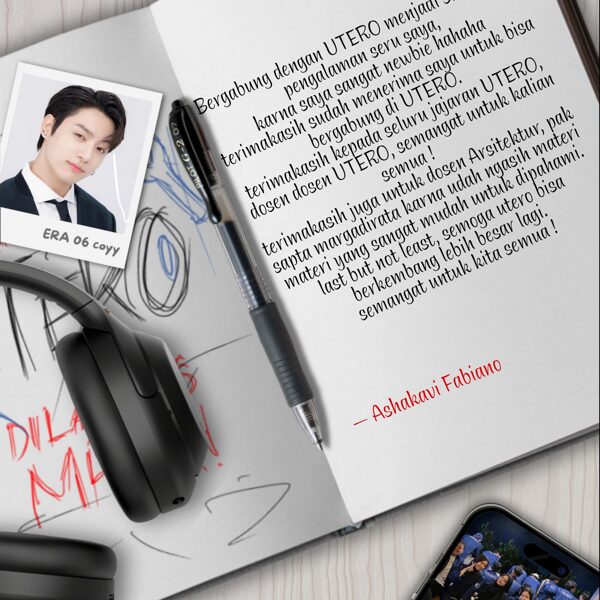 Bergabung dengan UTERO menjadi
pengalaman seru saya,
karna saya sangat newbie hahaha
terimakasih sudah menerima saya untuk bisa
bergabung di UTERO.
terimakasih kepada seluru jajaran UTERO,
dosen dosen UTERO, semangat untuk kalian
semua !
terimakasih juga untuk dosen Arsitektur, pak
sapta margadirata karna udah ngasih materi
materi yang sangat mudah untuk dipahami.
last but not least, semoga utero bisa
berkembang lebih besar lagi.
semangat untuk kita semua !
— Ashakavi Fabiano
ERA 06 coyy
PILOT G-2 07